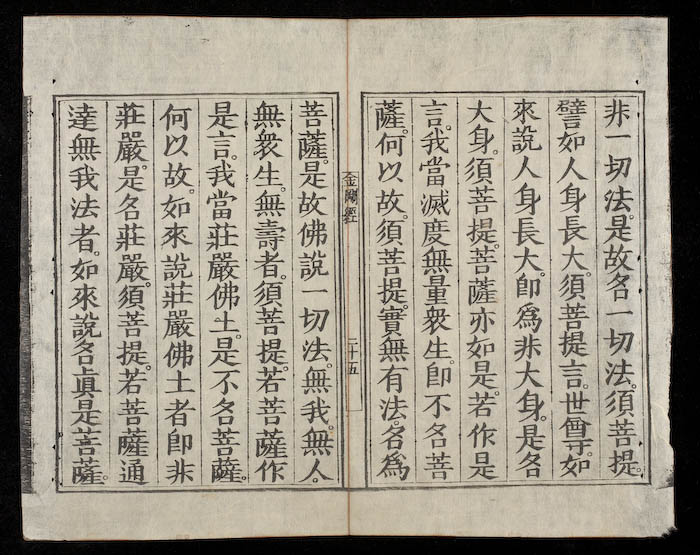 非一切法。是故名一切法。須菩提。
譬如人身長大。須菩提言。世尊。如
來說人身長大。卽爲非大身。是名
大身。須菩提。菩薩亦如是。若作是
言。我當滅度無量衆生。卽不名菩
薩。何以故。須菩提。實無有法。名爲
金剛經
二十五
菩薩。是故佛說一切法。無我。無人。
無衆生。無壽者。須菩提。若菩薩作
是言。我當莊嚴佛土。是不名菩薩。
何以故。如來說莊嚴佛土者卽非
莊嚴。是名莊嚴。須菩提。若菩薩通
達無我法者。如來說名眞是菩薩。